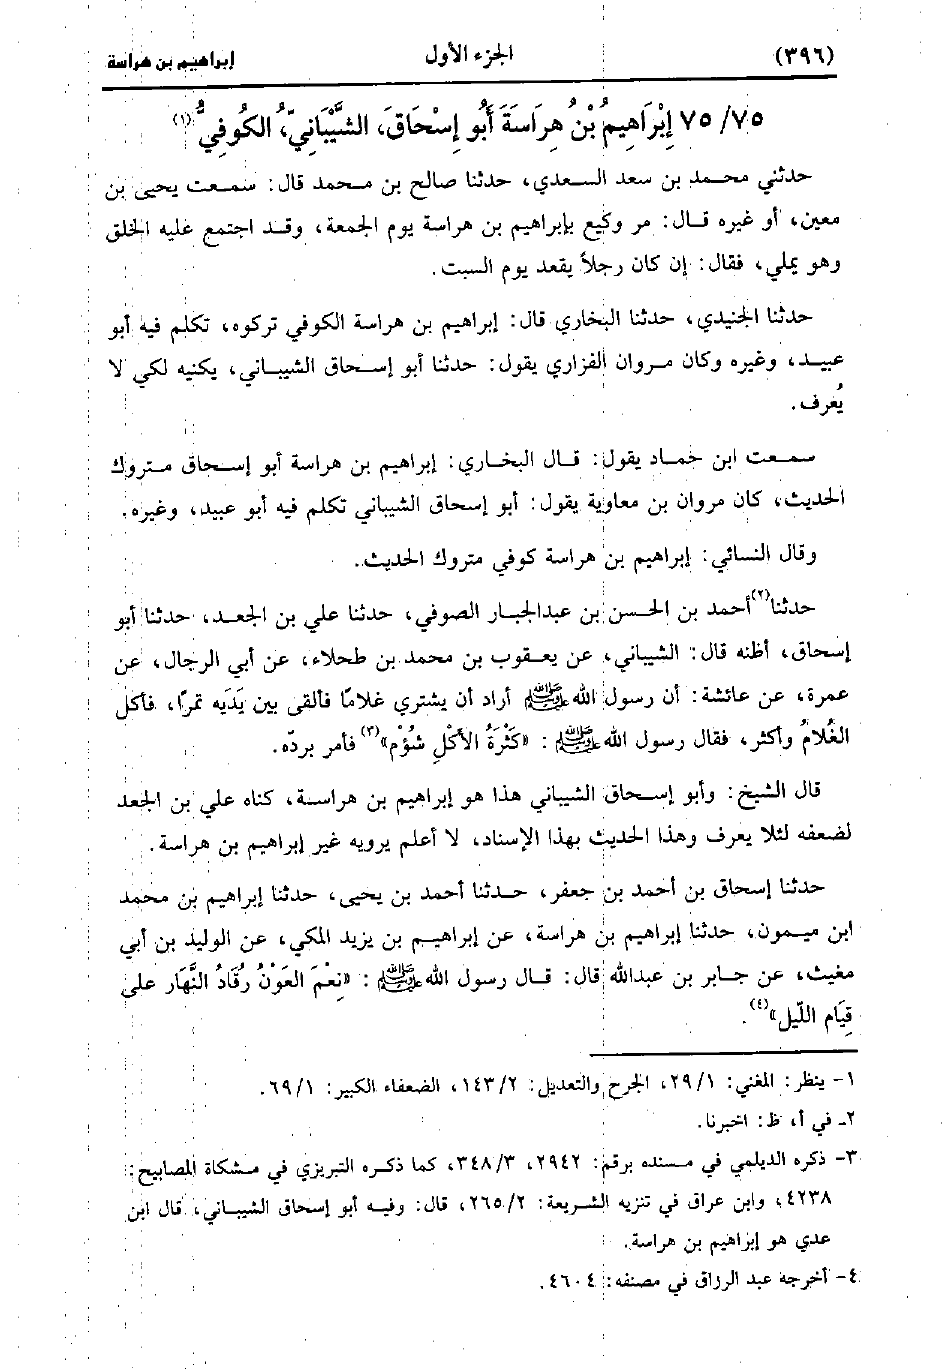 (٣٩٦) الجزء الأول إبراهيم بن هراسة
٧٥/ ٧٥ إِبْرَاهِيمُ بْنُ هِرَاسَةَ أَبُو إِسْحَاقَ، الشَّيْبَانِيُّ، الكُوفِيُّ(١)
حدثني محمد بن سعد السعدي، حدثنا صالح بن محمد قال: سمعت يحيى بن
معين، أو غيره قال: مر وكيع بإبراهيم بن هراسة يوم الجمعة، وقد اجتمع عليه الخلق
وهو يملي، فقال: إن كان رجلاً يقعد يوم السبت.
حدثنا الجنيدي، حدثنا البخاري قال: إبراهيم بن هراسة الكوفي تركوه، تكلم فيه أبو
عبيد، وغيره وكان مروان الفزاري يقول: حدثنا أبو إسحاق الشيباني، يكنيه لكي لا
يُعرف.
سمعت ابن حماد يقول: قال البخاري: إبراهيم بن هراسة أبو إسحاق متروك
الحديث، كان مروان بن معاوية يقول: أبو إسحاق الشيباني تكلم فيه أبو عبيد، وغيره.
وقال النسائي: إبراهيم بن هراسة كوفي متروك الحديث.
حدثنا(٢) أحمد بن الحسن بن عبدالجبار الصوفي، حدثنا علي بن الجعد، حدثنا أبو
إسحاق، أظنه قال: الشيباني، عن يعقوب بن محمد بن طحلاء، عن أبي الرجال، عن
عمرة، عن عائشة: أن رسول الله ﷺ أراد أن يشتري غلامًا فألقى بين يَدَيه تمرًا، فأكل
الغُلامُ وأكثر، فقال رسول الله ﷺ : «كَثْرَةُ الأَكْلِ شُؤْم»(٣) فأمر بردّه.
قال الشيخ: وأبو إسحاق الشيباني هذا هو إبراهيم بن هراسة، كناه علي بن الجعد
لضعفه لئلا يعرف وهذا الحديث بهذا الإسناد، لا أعلم يرويه غير إبراهيم بن هراسة.
حدثنا إسحاق بن أحمد بن جعفر، حدثنا أحمد بن يحيى، حدثنا إبراهيم بن محمد
ابن ميمون، حدثنا إبراهيم بن هراسة، عن إبراهيم بن يزيد المكي، عن الوليد بن أبي
مغيث، عن جابر بن عبدالله قال: قال رسول الله ﷺ : «نِعْمَ العَوْنُ رُقَادُ النَّهَار على
قِيَام اللّيل»(٤).
١- ينظر: المغني: ٢٩/١، الجرح والتعديل: ١٤٣/٢، الضعفاء الكبير: ٦٩/١.
٢- في أ، ظ: اخبرنا.
٣- ذكره الديلمي في مسنده برقم: ٢٩٤٢، ٣٤٨/٣، كما ذكره التبريزي في مشكاة المصابيح:
٤٢٣٨، وابن عراق في تنزيه الشريعة: ٢٦٥/٢، قال: وفيه أبو إسحاق الشيباني، قال ابن
عدي هو إبراهيم بن هراسة.
٤- أخرجه عبد الرزاق في مصنفه: ٤٦٠٤.